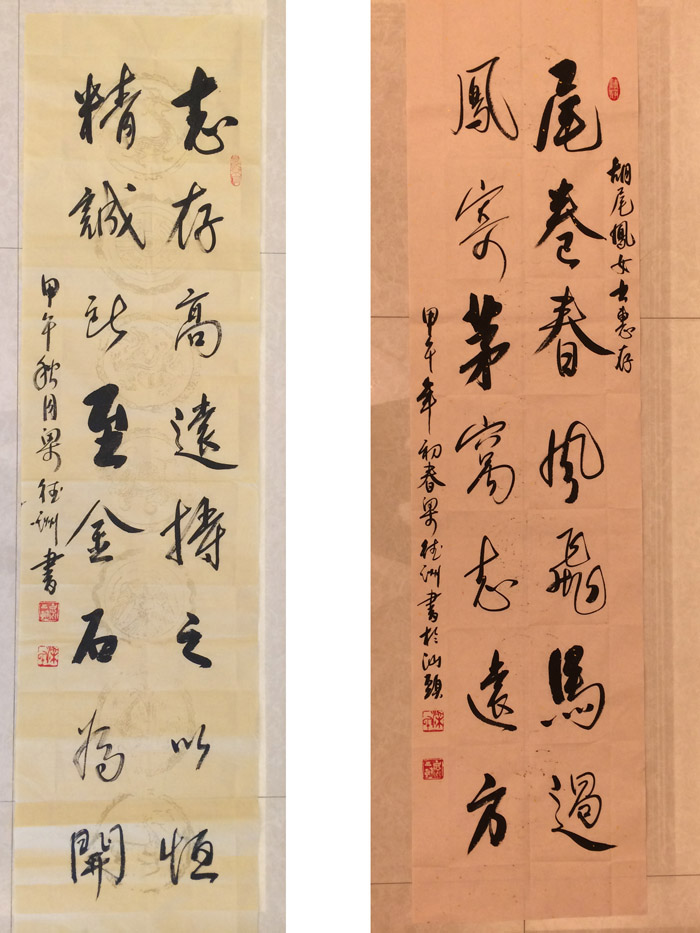 志存高遠持之以恒
精誠所至金石為開
甲午秋月梁德洲書
胡尾鳳女士惠存
尾卷春風飛馬過
鳳寄茅窩志遠方
甲午年初春梁德洲書於汕頭